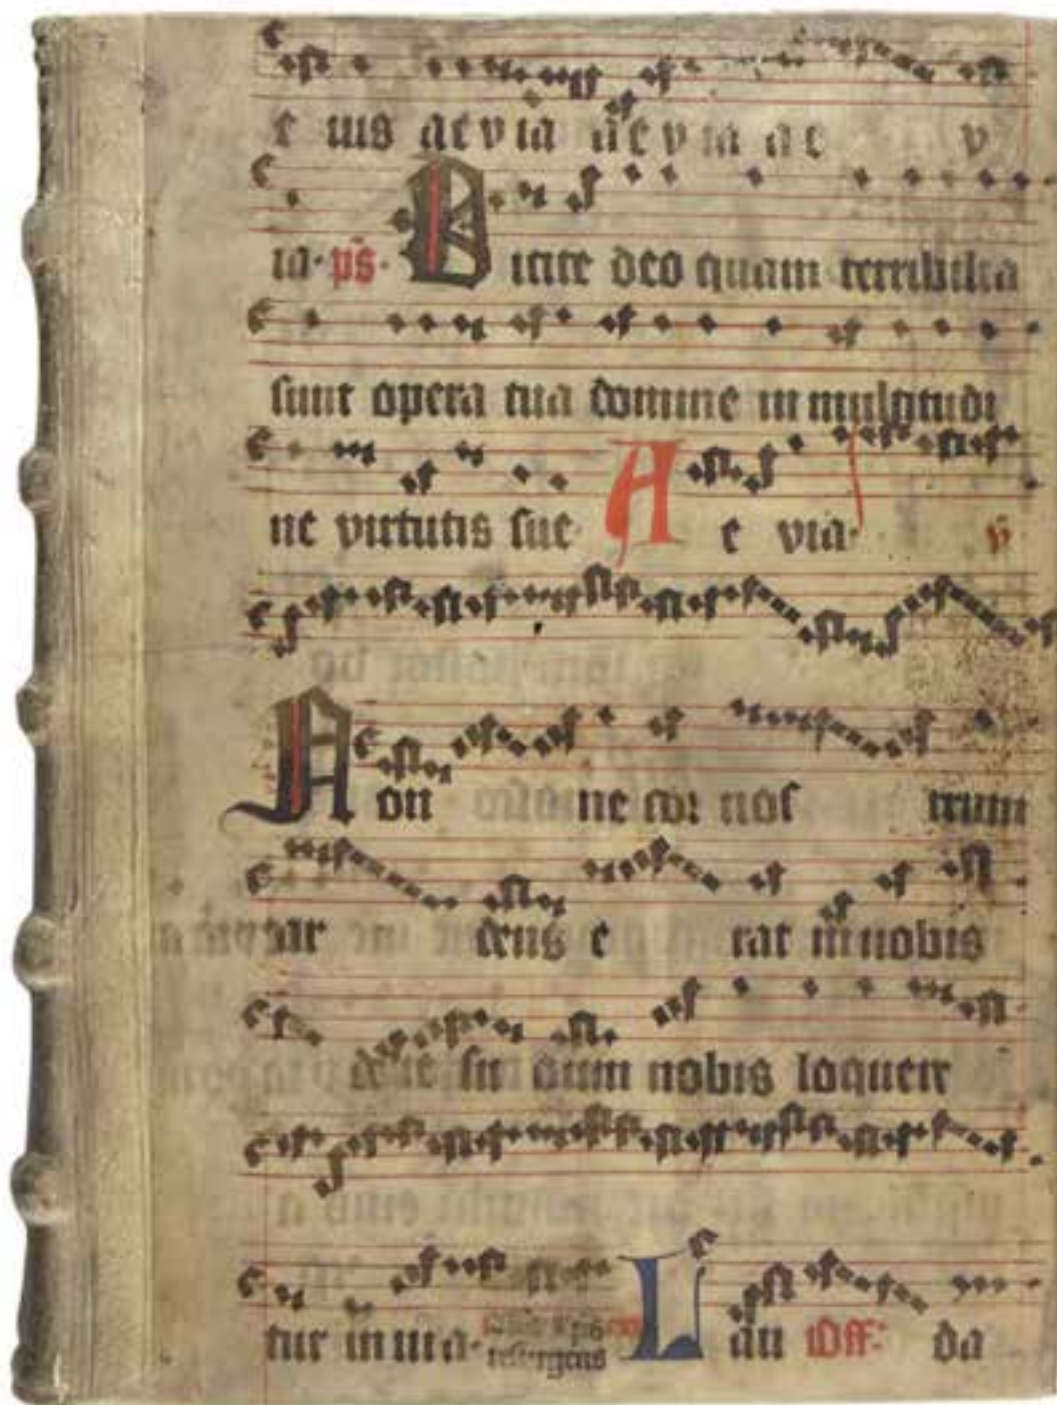 e ius aevia aevia ae v
ia· ps̄· Dicite deo quam terribilia
sunt opera tua domine in multitudi
ne virtutis tue· A e via· v̄
Non ne cor nos trum
ar dens e rat in nobis
de ie su dum nobis loquere
tur in uia· resurgens Lau Off: da